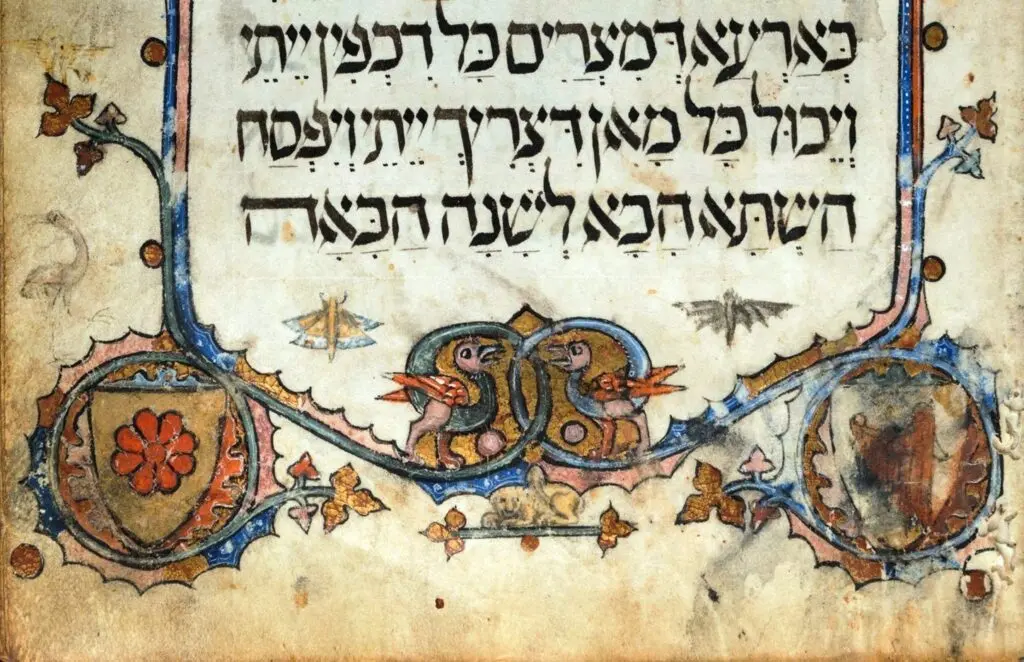 בְּאַרְעָא דְּמִצְרַיִם כָּל דִכְפִין יֵיתֵי
וְיֵכוּל כָּל מַאן דִּצְרִיךְ יֵיתֵי וְיִפְסַח
הַשְׁתָּא הָכָא לְשָׁנָה הַבָּאָה